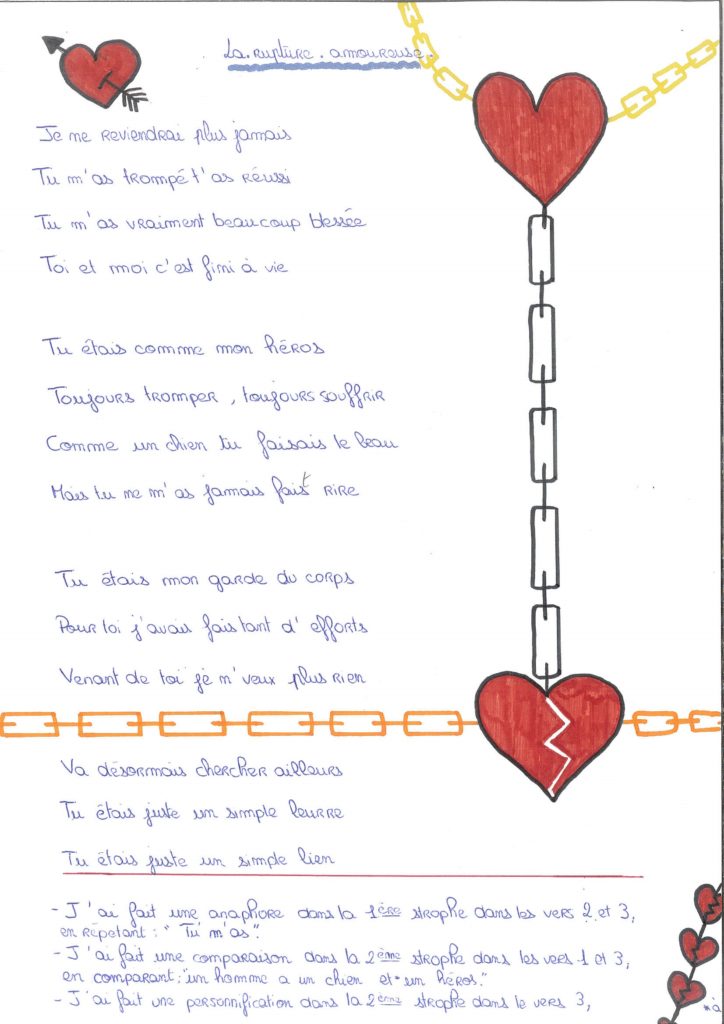 La rupture amoureuse.
Je ne reviendrai plus jamais
Tu m'as trompé t'as réussi
Tu m'as vraiment beaucoup blessée
Toi et moi c'est fini à vie
Tu étais comme mon héros
Toujours tromper, toujours souffrir
Comme un chien tu faisais le beau
Mais tu ne m'as jamais fait rire
Tu étais mon garde du corps
Pour toi j'avais fais tant d'efforts
Venant de toi je n'veux plus rien
Va désormais chercher ailleurs
Tu étais juste un simple leurre
Tu étais juste un simple lien
- J'ai fait une anaphore dans la 1ère strophe dans les vers 2 et 3,
en répetant : "Tu m'as".
- J'ai fait une comparaison dans la 2ème strophe dans les vers 1 et 3,
en comparant : "un homme a un chien et un héros."
- J'ai fait une personnification dans la 2ème strophe dans le vers 3,